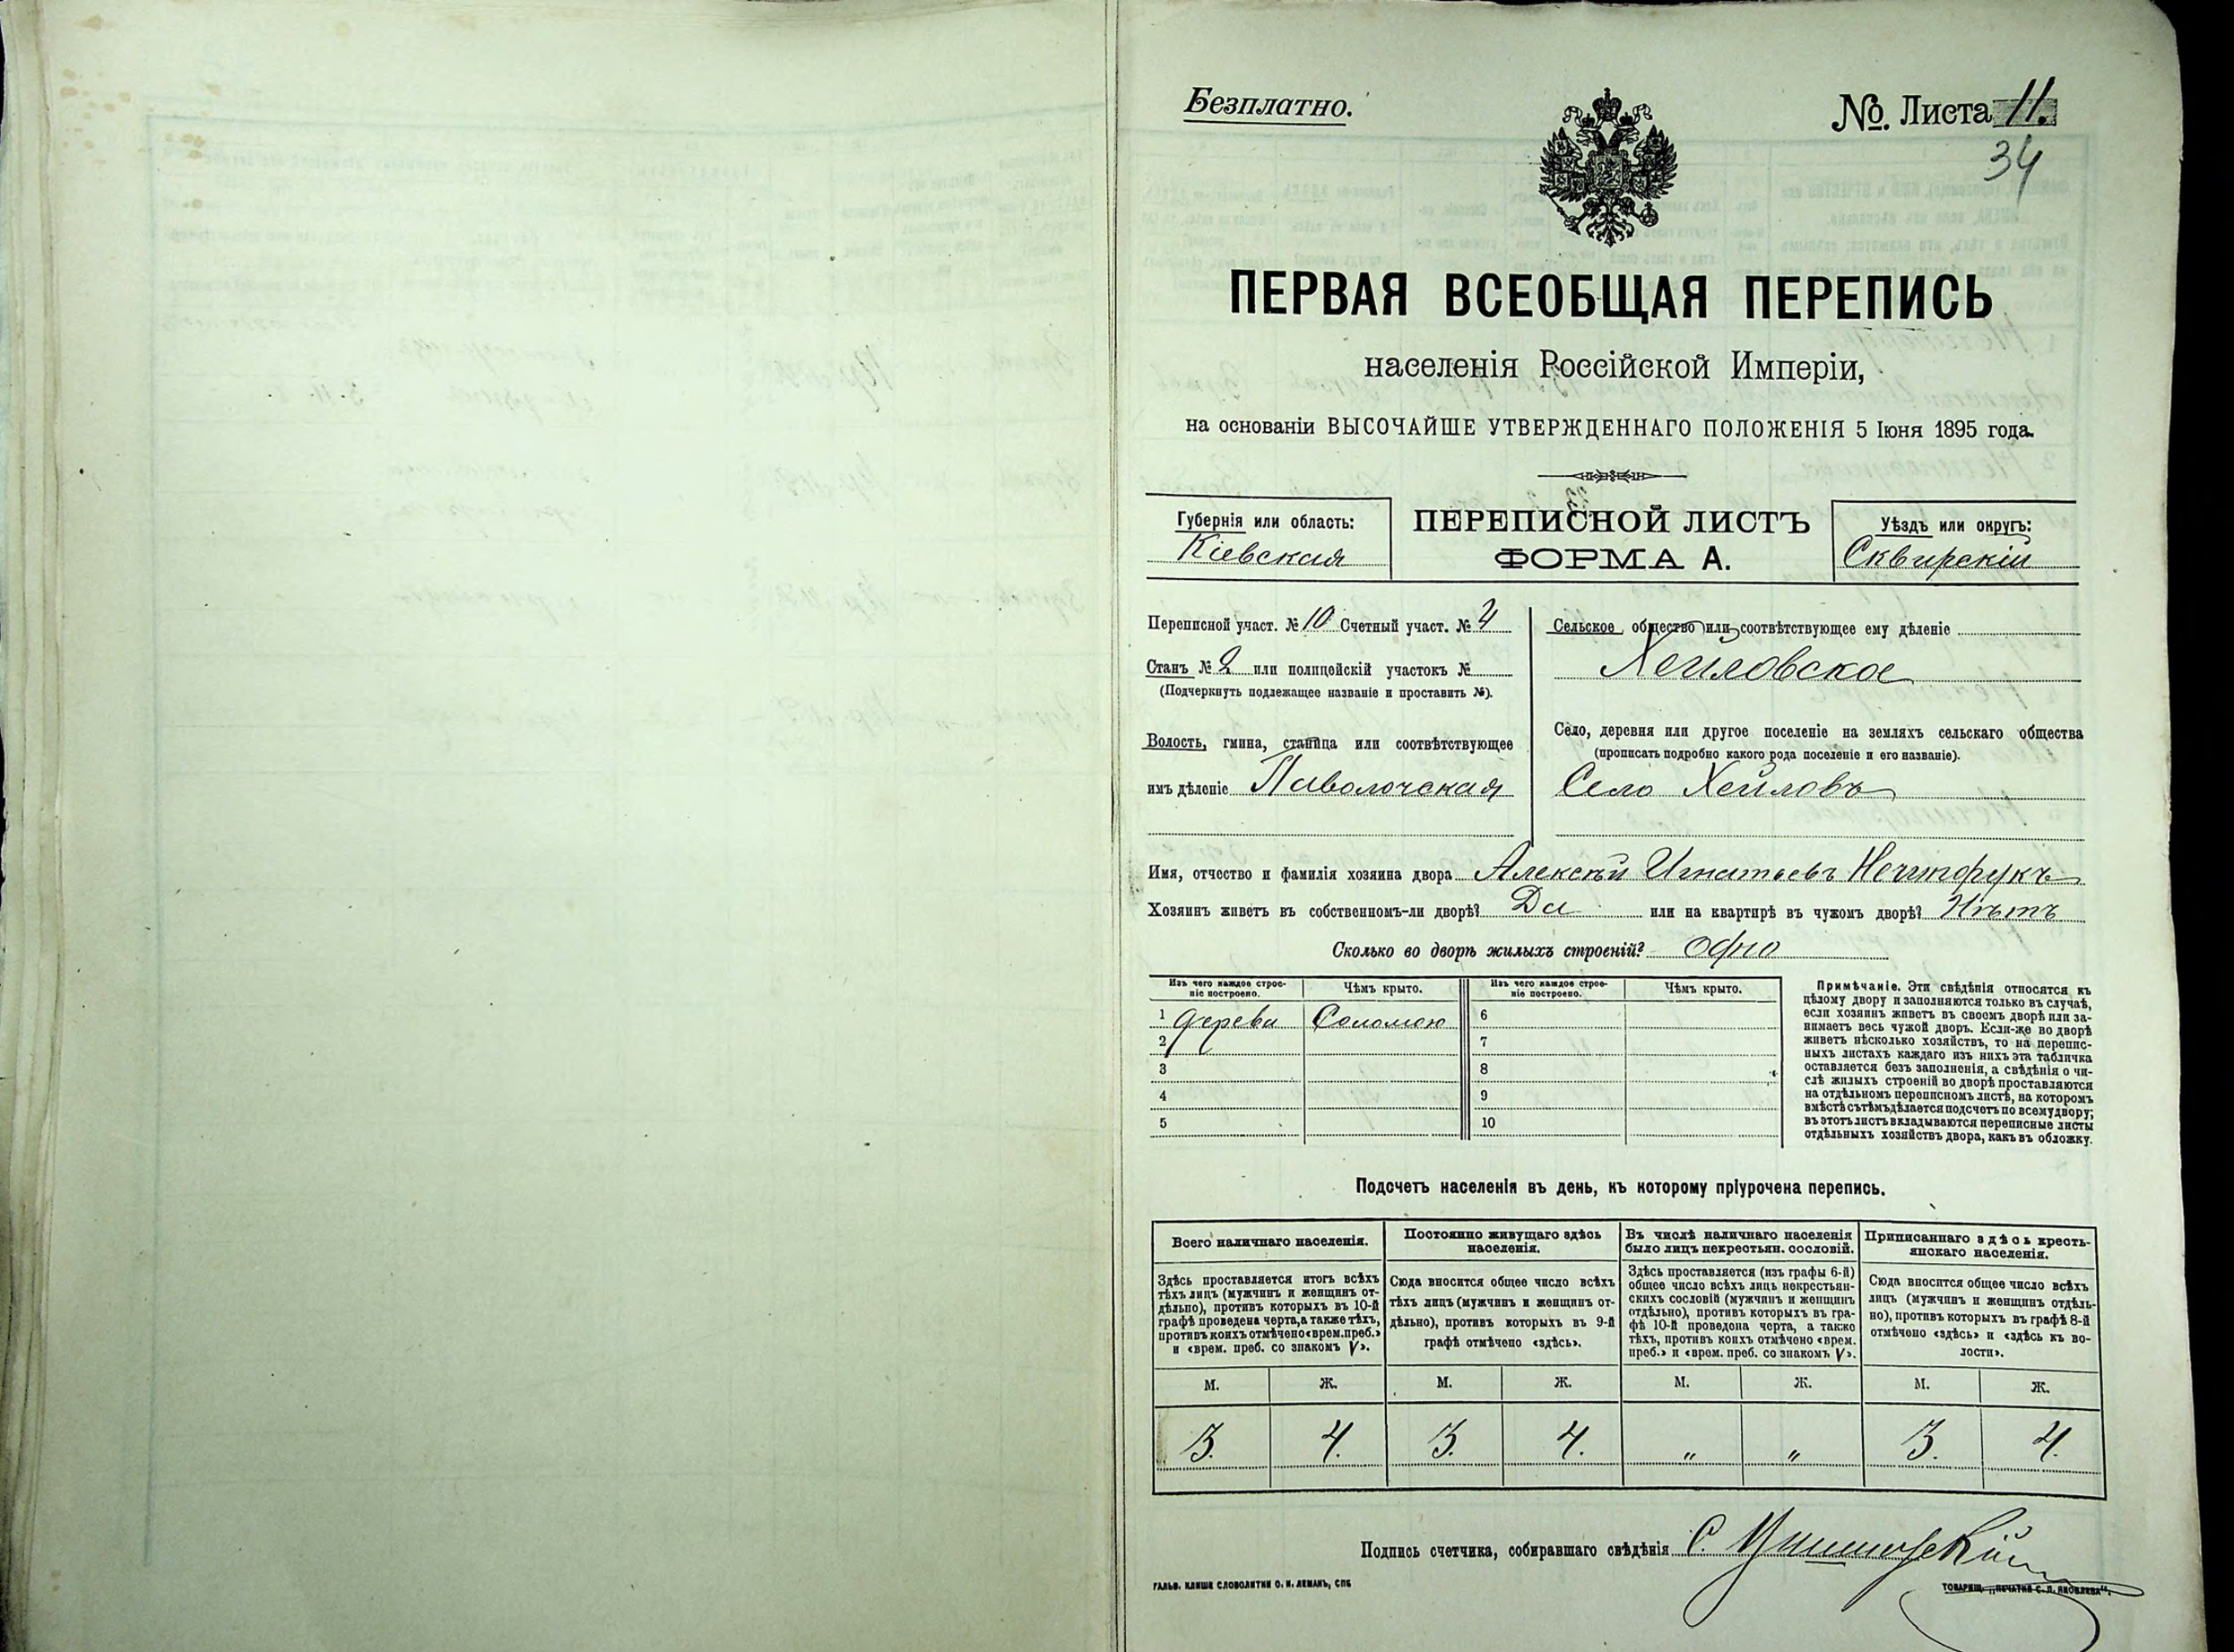 Безплатно.
№. Листа 11.
34
ПЕРВАЯ ВСЕОБЩАЯ ПЕРЕПИСЬ
населенія Россійской Имперіи,
на основаніи ВЫСОЧАЙШЕ УТВЕРЖДЕННАГО ПОЛОЖЕНІЯ 5 Іюня 1895 года.
Губернія или область:
Кіевская
ПЕРЕПИСНОЙ ЛИСТЪ
ФОРМА А.
Уѣздъ или округъ:
Сквирскій
Переписной участ. № 10 Счетный участ. № 4
Станъ № 2 или полицейскій участокъ №
(Подчеркнуть подлежащее названіе и проставить №).
Волость, гмина, станица или соотвѣтствующее
имъ дѣленіе Паволочская
Сельское общество или соотвѣтствующее ему дѣленіе
Хейловское
Село, деревня или другое поселеніе на земляхъ сельскаго общества
(прописать подробно какого рода поселеніе и его названіе).
Село Хейловъ
Имя, отчество и фамилія хозяина двора Алексѣй Игнатьевъ Нечипорукъ
Хозяинъ живетъ въ собственномъ-ли дворѣ? Да или на квартирѣ въ чужомъ дворѣ? Нѣтъ
Сколько во дворѣ жилыхъ строеній? одно
Изъ чего каждое строе-
ніе построено.
Чѣмъ крыто.
Изъ чего каждое строе-
ніе построено.
Чѣмъ крыто.
1 дерева Соломою 6
2 7
3 8
4 9
5 10
Примѣчаніе. Эти свѣдѣнія относятся къ
цѣлому двору и заполняются только въ случаѣ,
если хозяинъ живетъ въ своемъ дворѣ или за-
нимаетъ весь чужой дворъ. Если-же во дворѣ
живетъ нѣсколько хозяйствъ, то на перепис-
ныхъ листахъ каждаго изъ нихъ эта табличка
оставляется безъ заполненія, а свѣдѣнія о чи-
слѣ жилыхъ строеній во дворѣ проставляются
на отдѣльномъ переписномъ листѣ, на которомъ
вмѣстѣ съ тѣмъ дѣлается подсчетъ по всему двору;
въ этотъ листъ вкладываются переписные листы
отдѣльныхъ хозяйствъ двора, какъ въ обложку.
Подсчетъ населенія въ день, къ которому пріурочена перепись.
Всего наличнаго населенія.
Здѣсь проставляется итогъ всѣхъ
тѣхъ лицъ (мужчинъ и женщинъ от-
дѣльно), противъ которыхъ въ 10-й
графѣ проведена черта, а также тѣхъ,
противъ коихъ отмѣчено «врем. преб.»
и «врем. преб. со знакомъ V».
Постоянно живущаго здѣсь
населенія.
Сюда вносится общее число всѣхъ
тѣхъ лицъ (мужчинъ и женщинъ от-
дѣльно), противъ которыхъ въ 9-й
графѣ отмѣчено «здѣсь».
Въ числѣ наличнаго населенія
было лицъ некрестьян. сословій.
Здѣсь проставляется (изъ графы 6-й)
общее число всѣхъ лицъ некрестьян-
скихъ сословій (мужчинъ и женщинъ
отдѣльно), противъ которыхъ въ гра-
фѣ 10-й проведена черта, а также
тѣхъ, противъ коихъ отмѣчено «врем.
преб.» и «врем. преб. со знакомъ V».
Приписаннаго здѣсь кресть-
янскаго населенія.
Сюда вносится общее число всѣхъ
лицъ (мужчинъ и женщинъ отдѣль-
но), противъ которыхъ въ графѣ 8-й
отмѣчено «здѣсь» и «здѣсь къ во-
лости».
М. Ж. М. Ж. М. Ж. М. Ж.
3. 4. 3. 4. „ „ 3. 4.
Подпись счетчика, собиравшаго свѣдѣнія С.
ГАЛЬВ. КЛИШЕ СЛОВОЛИТНИ О. И. ЛЕМАНЪ, СПБ
ТОВАРИЩ. „ПЕЧАТНЯ С. П. ЯКОВЛЕВА".